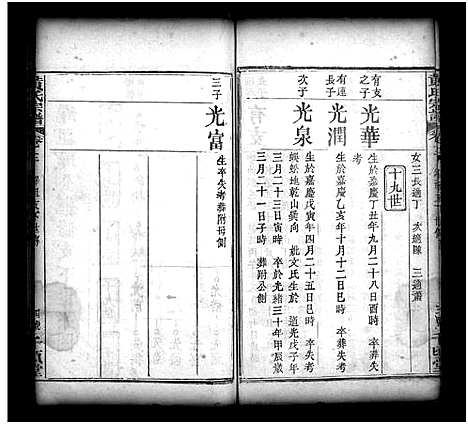 女三長適丁 次適陳 三適蕭
十九世
有亥之子
光華
生於嘉慶丁丑年九月二十八日酉時 卒葬失考
有運長子
光潤
生於嘉慶乙亥年十月十二日巳時 卒失考
次子
光泉
生於嘉慶戊寅年四月二十五日巳時 卒失考 葬
蜈蚣地乾山巽向 妣文氏生於道光戊子年
三月二十三日寅時 卒於光緒三十年甲辰歲
三月二十一日子時 葬附公側
三子
光富
生卒失考葬附毋側
黃氏宗譜